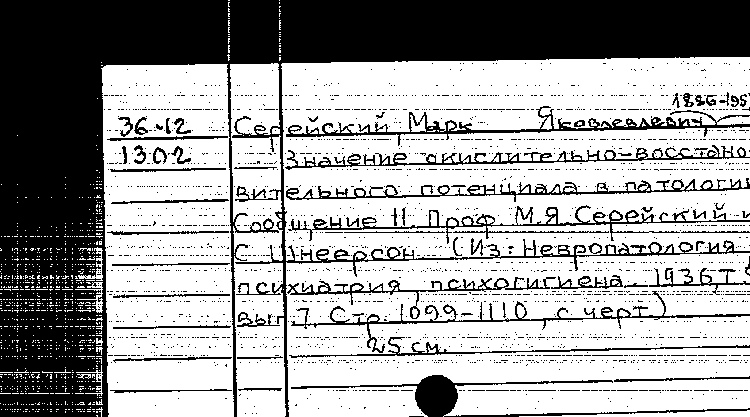 1886-195
36-12 Серейский Марк Яковлевлевич,
1302 Значение окислительно-восстано-
вительного потенциала в патологии
Сообщение II. Проф. М.Я. Серейский и
С. Шнеерсон (Из: Невропатология
психиатрия, психогигиена. 1936, Т. 5
вып. 7. Стр. 1099-1110, с черт.)
25 см.